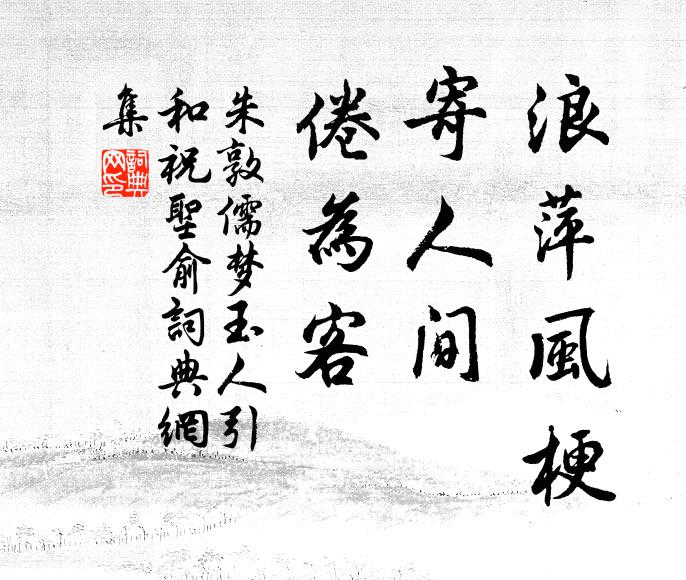 浪萍風梗
寄人間
倦為客
朱敦儒梦玉人引
和祝聖俞詞典網
集
詞典网印